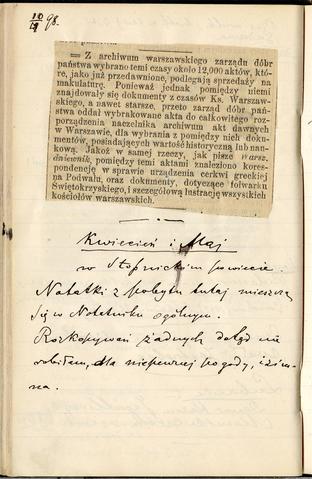 10/4 98.
= Z archiwum warszawskiego zarządu dóbr
państwa wybrano temi czasy około 12,000 aktów, któ-
re, jako już przedawnione, podlegają sprzedaży na
makulaturę. Ponieważ jednak pomiędzy niemi
znajdowały się dokumenty z czasów Ks. Warszaw-
skiego, a nawet starsze, przeto zarząd dóbr pań-
stwa oddał wybrakowane akta do całkowitego roz-
porządzenia naczelnika archiwum akt dawnych
w Warszawie, dla wybrania z pomiędzy nich doku-
mentów, posiadających wartość historyczną lub nau-
kową. Jakoż w samej rzeczy, jak pisze Warsz.
dniewnik, pomiędzy temi aktami znaleziono kores-
pondencję w sprawie urządzenia cerkwi greckiej
na Podwalu, oraz dokumenty, dotyczące folwarku
Świętokrzyskiego, i szczegółową lustrację wszystkich
kościołów warszawskich.
Kwiecień i Maj
w Stopnickim powiecie.
Notatki z pobytu tutaj mieszczą
się w Notatniku ogólnym.
Rozkopywań żadnych dotąd nie
robiłem, dla niepewnej pogody, i zim-
na.